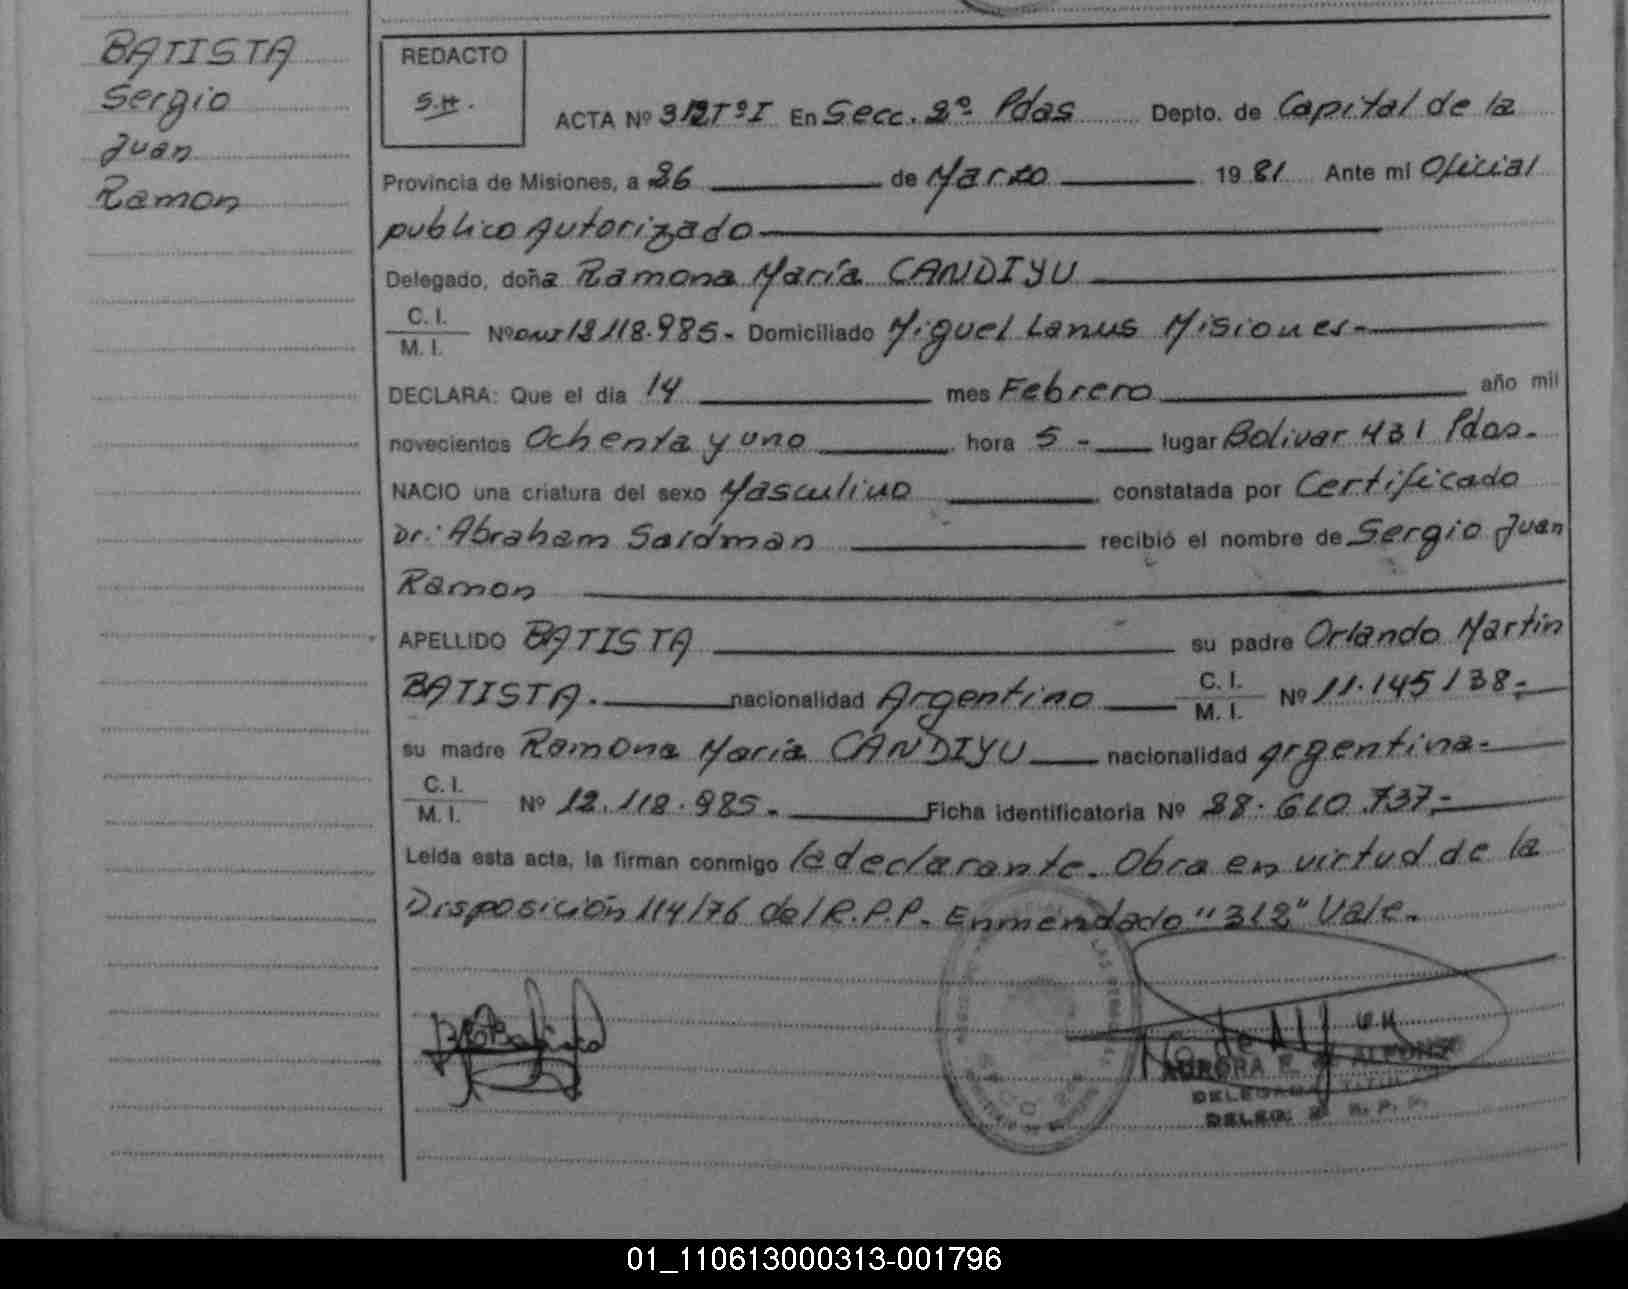 BATISTA
Sergio
Juan
Ramon
REDACTO
S.H.
ACTA Nº 312TºI En Secc. 2º Pdas Depto. de Capital de la
Provincia de Misiones, a 26 de Marzo 1981 Ante mi Oficial
publico Autorizado
Delegado, doña Ramona María CANDIYU
C. I.
M. I. Nº 12118.985- Domiciliado Miguel Lanus Misiones-
DECLARA: Que el dia 14 mes Febrero año mil
novecientos Ochenta y uno hora 5 - lugar Bolivar 431 Pdas.
NACIO una criatura del sexo Masculino constatada por Certificado
Dr. Abraham Saidman recibió el nombre de Sergio Juan
Ramon
APELLIDO BATISTA su padre Orlando Martin
BATISTA. nacionalidad Argentino C. I.
M. I. Nº 11.145138.-
su madre Ramona María CANDIYU nacionalidad argentina-
C. I.
M. I. Nº 12.118.985- Ficha identificatoria Nº 28.610.737.-
Leída esta acta, la firman conmigo la declarante. Obra en virtud de la
Disposición 114/76 del R.P.P. Enmendado "312" Vale.
AURORA E. ALFONZO
DELEGADA TITULAR
DELEG. 2ª R. P. P.
01_110613000313-001796